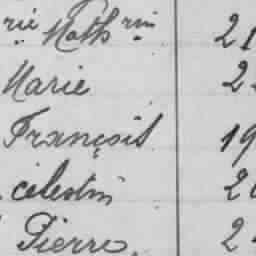 rie Math rin 21
Marie 2
François 19
celestin 2
Pierre. 2